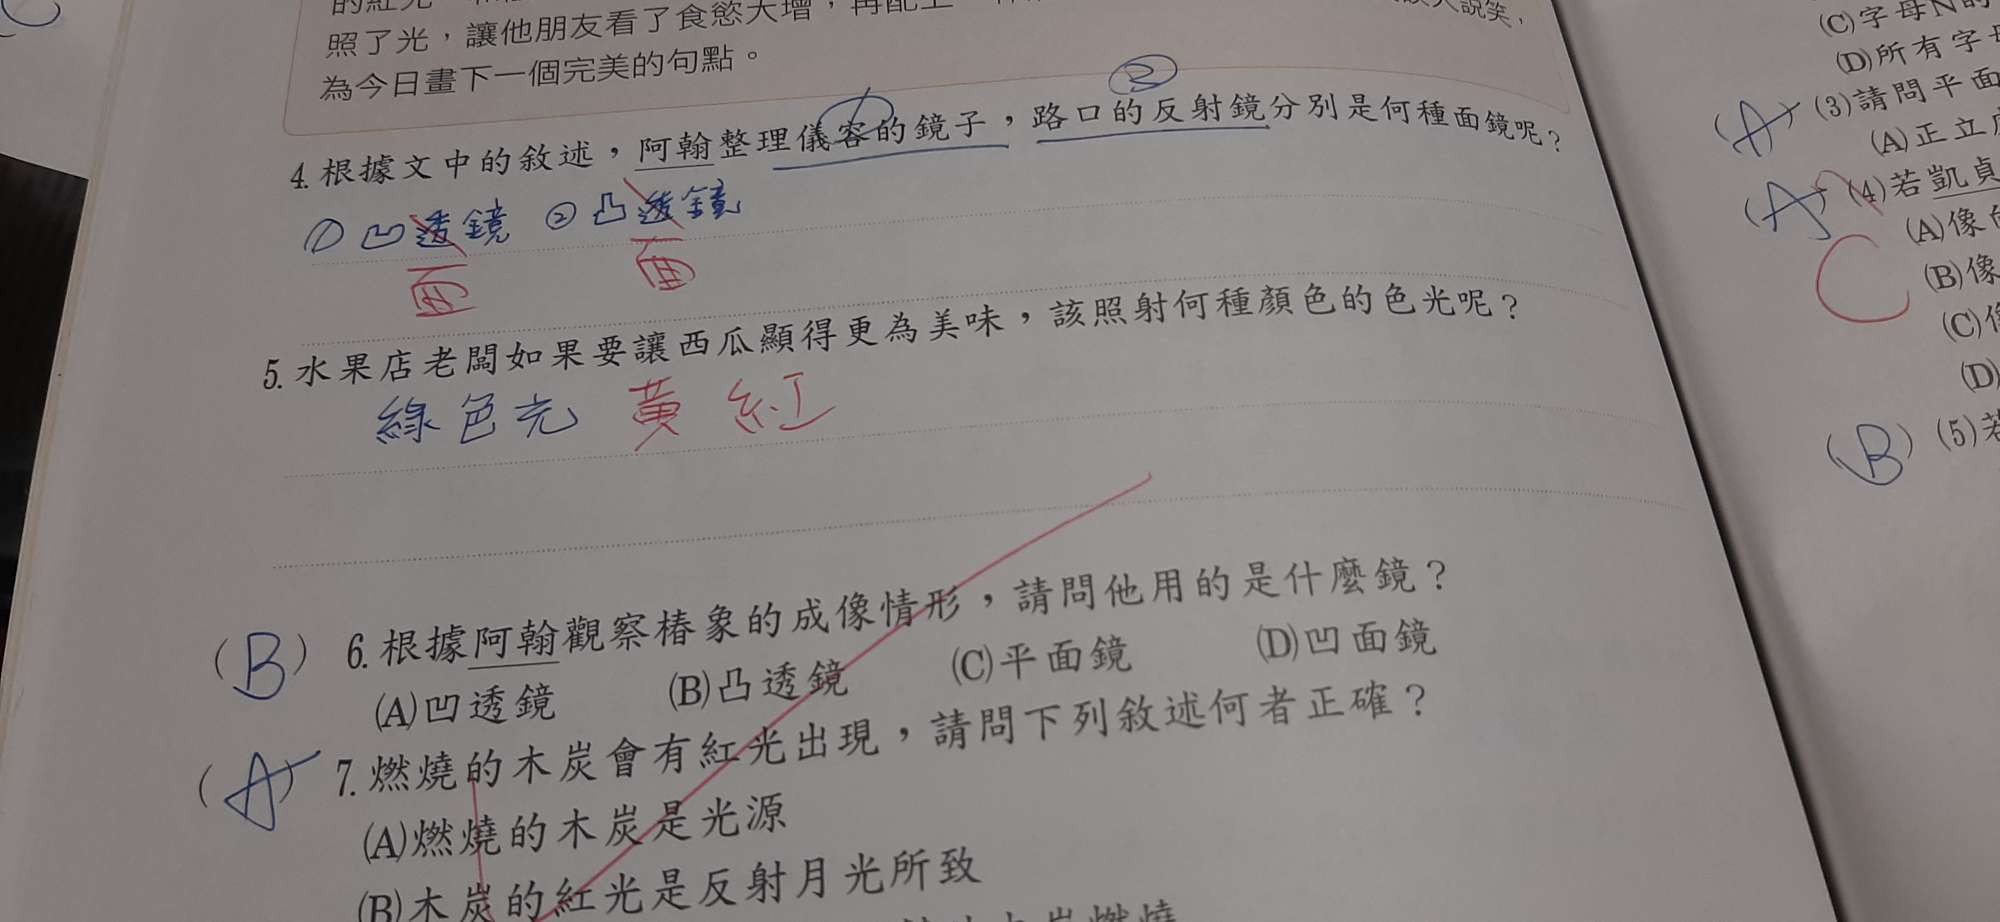 照了光，讓他朋友看了食慾大增，再配上
說笑，
為今日畫下一個完美的句點。
4. 根據文中的敘述，阿翰整理儀容的鏡子，路口的反射鏡分別是何種面鏡呢？
① ②
① 凹透鏡 ② 凸透鏡
面 面
5. 水果店老闆如果要讓西瓜顯得更為美味，該照射何種顏色的色光呢？
綠色光 黃 紅
(B) 6. 根據阿翰觀察椿象的成像情形，請問他用的是什麼鏡？
(A)凹透鏡 (B)凸透鏡 (C)平面鏡 (D)凹面鏡
(A) 7. 燃燒的木炭會有紅光出現，請問下列敘述何者正確？
(A)燃燒的木炭是光源
(B)木炭的紅光是反射月光所致
(C)字母N的
(D)所有字母
(A) (3)請問平面
(A)正立
(A) (4)若凱貞
C
(A)像
(B)像
(C)
(D)
(B) (5)若